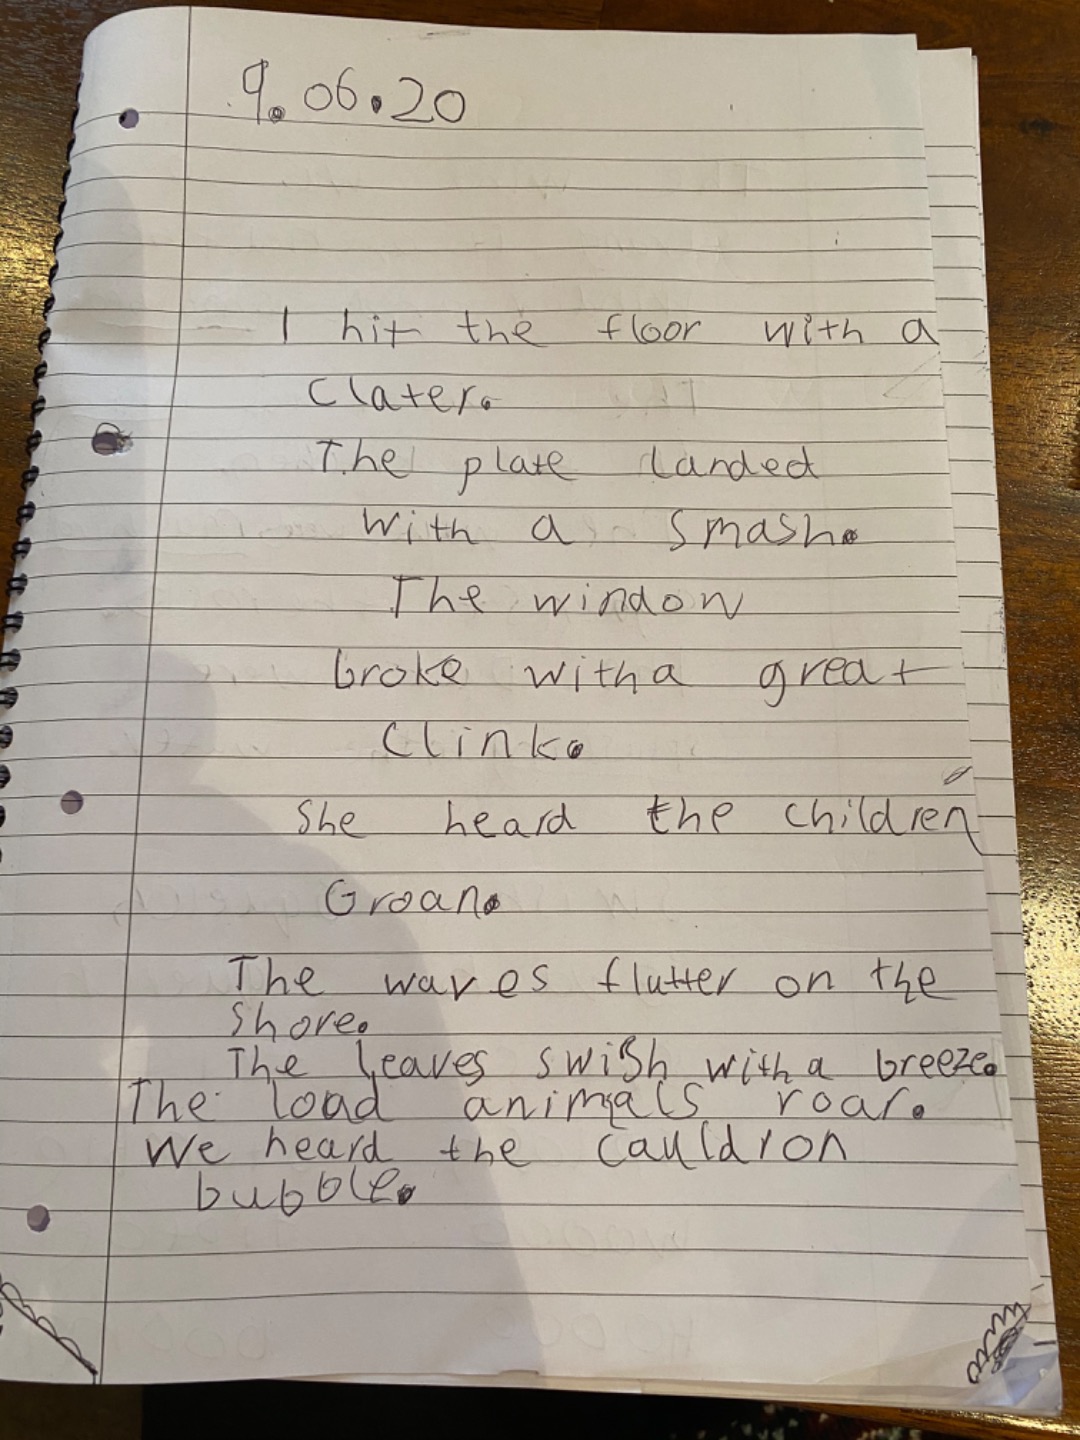 9.06.20
I hit the floor with a
Clater.
The plate landed
with a smash.
The window
broke with a great
Clink.
She heard the children
Groan.
The waves flutter on the
Shore.
The leaves swish with a breeze.
The load animals roar.
We heard the cauldron
bubble.